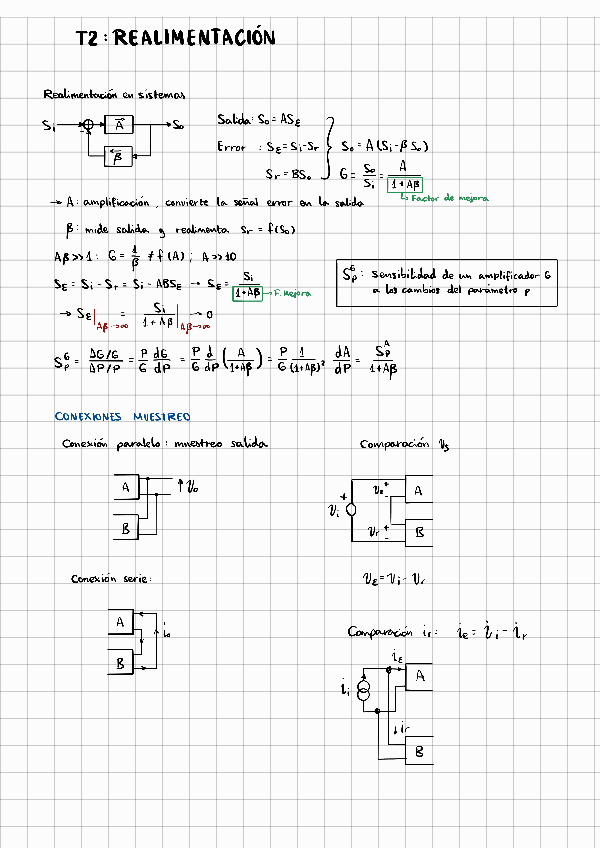 T2: REALIMENTACIÓN
Realimentación en sistemas
Si → A → So
β
Salida: So = ASε
Error : Sε = Si - Sr
Sr = BSo
So = A (Si - β So)
G = So/Si = A/(1+Aβ)
↳ Factor de mejora
→ A: amplificación, convierte la señal error en la salida
β: mide salida y realimenta Sr = f(So)
Aβ >> 1: G = 1/β ≠ f(A); A >> 10
Sε = Si - Sr = Si - ABSε → Sε = Si/(1+Aβ) → F. Mejora
S_p^G : Sensibilidad de un amplificador G
a los cambios del parámetro p
→ Sε|Aβ→∞ = Si/(1+Aβ)|Aβ→∞ → 0
S_p^G = (ΔG/G)/(ΔP/P) = P/G dG/dP = P/G d/dP (A/(1+Aβ)) = P/G 1/(1+Aβ)² dA/dP = S_p^A/(1+Aβ)
CONEXIONES MUESTREO
Conexión paralelo: muestreo salida
A
B
↑ Vo
Comparación Vs
Vi
+
Vε + -
Vr + -
A
B
Vε = Vi - Vr
Conexión serie:
A
B
io
Comparación ir: iε = ii - ir
iε
ii
A
↓ ir
B